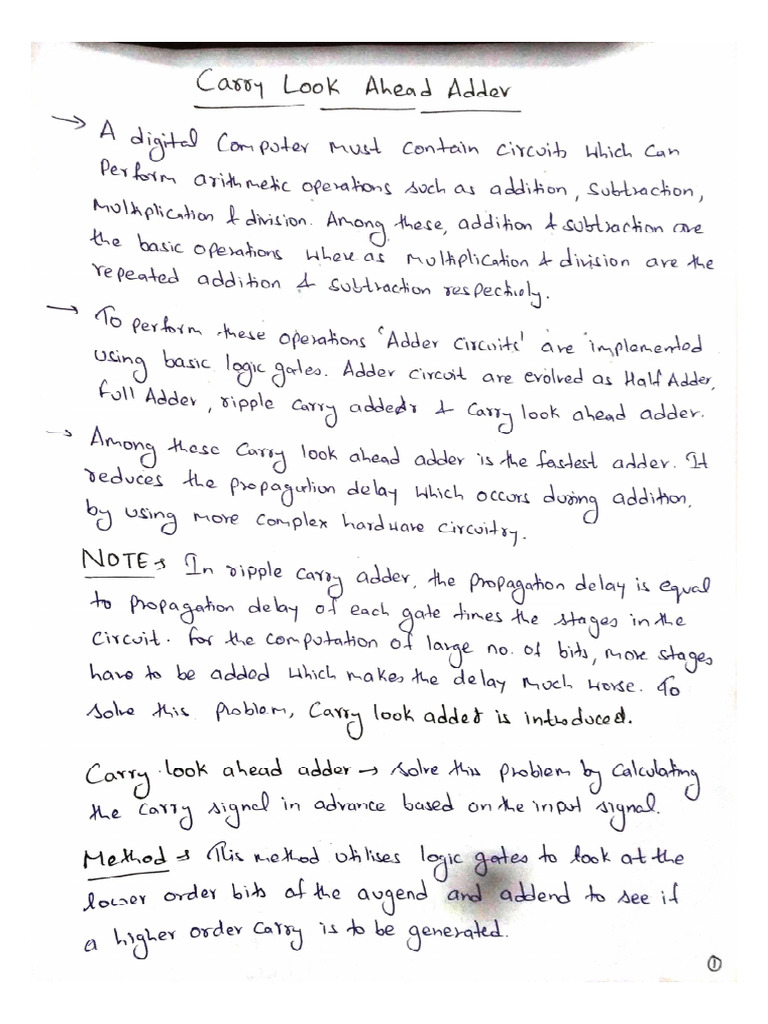 Carry Look Ahead Adder
→ A digital Computer must contain circuits which can
perform arithmetic operations such as addition, subtraction,
Multiplication & division. Among these, addition & subtraction are
the basic operations where as multiplication & division are the
repeated addition & subtraction respectively.
→ To perform these operations 'Adder circuits' are implemented
using basic logic gates. Adder circuit are evolved as Half Adder,
Full Adder, ripple carry addedr & Carry look ahead adder.
→ Among these Carry look ahead adder is the fastest adder. It
reduces the propagation delay which occurs during addition,
by using more complex hardware circuitry.
NOTE → In ripple carry adder, the propagation delay is equal
to propagation delay of each gate times the stages in the
circuit. For the computation of large no. of bits, more stages
have to be added which makes the delay much worse. To
solve this problem, Carry look adder is introduced.
Carry look ahead adder → solve this problem by calculating
the carry signal in advance based on the input signal.
Method → This method utilises logic gates to look at the
lower order bits of the augend and addend to see if
a higher order carry is to be generated.
①